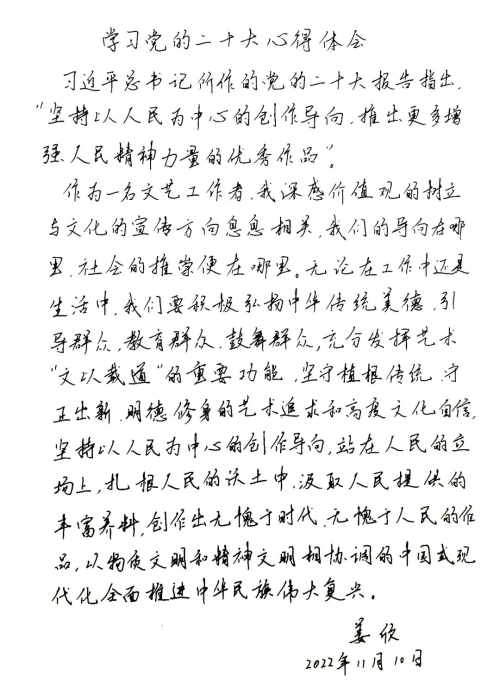 学习党的二十大心得体会
习近平总书记所作的党的二十大报告指出,
“坚持以人民为中心的创作导向,推出更多增
强人民精神力量的优秀作品”。
作为一名文艺工作者,我深感价值观的树立
与文化的宣传方向息息相关,我们的导向在哪
里,社会的推崇便在哪里。无论在工作中还是
生活中,我们要积极弘扬中华传统美德,引
导群众,教育群众,鼓舞群众,充分发挥艺术
“文以载道”的重要功能,坚守植根传统、守
正出新、明德修身的艺术追求和高度文化自信,
坚持以人民为中心的创作导向,站在人民的立
场上,扎根人民的沃土中,汲取人民提供的
丰富养料,创作出无愧于时代、无愧于人民的作
品,以物质文明和精神文明相协调的中国式现
代化全面推进中华民族伟大复兴。
姜欣
2022年11月10日